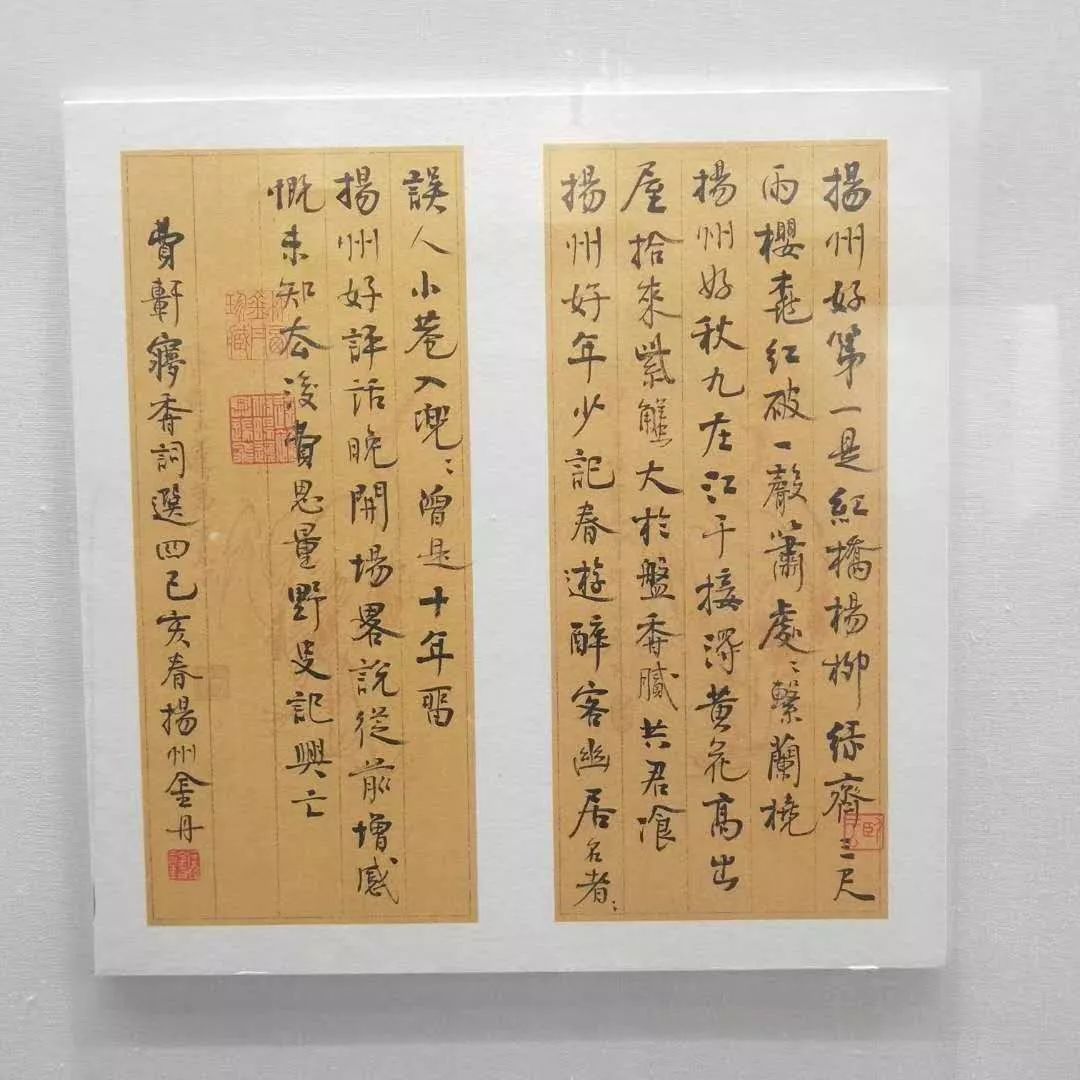 揚州好第一是紅橋楊柳綠齊三尺
雨櫻桃紅破一聲簫處〻繫蘭橈
揚州好秋九在江干接得黄花高出
屋拾來紫蟹大於盤香膩共君飡
揚州好年少記春遊醉客幽居名者〻
誤人小菴入兜〻曾是十年留
揚州好評話晚開場畧說從前增感
慨未知去後費思量野史記興亡
費軒夢香詞選四己亥春揚州金丹